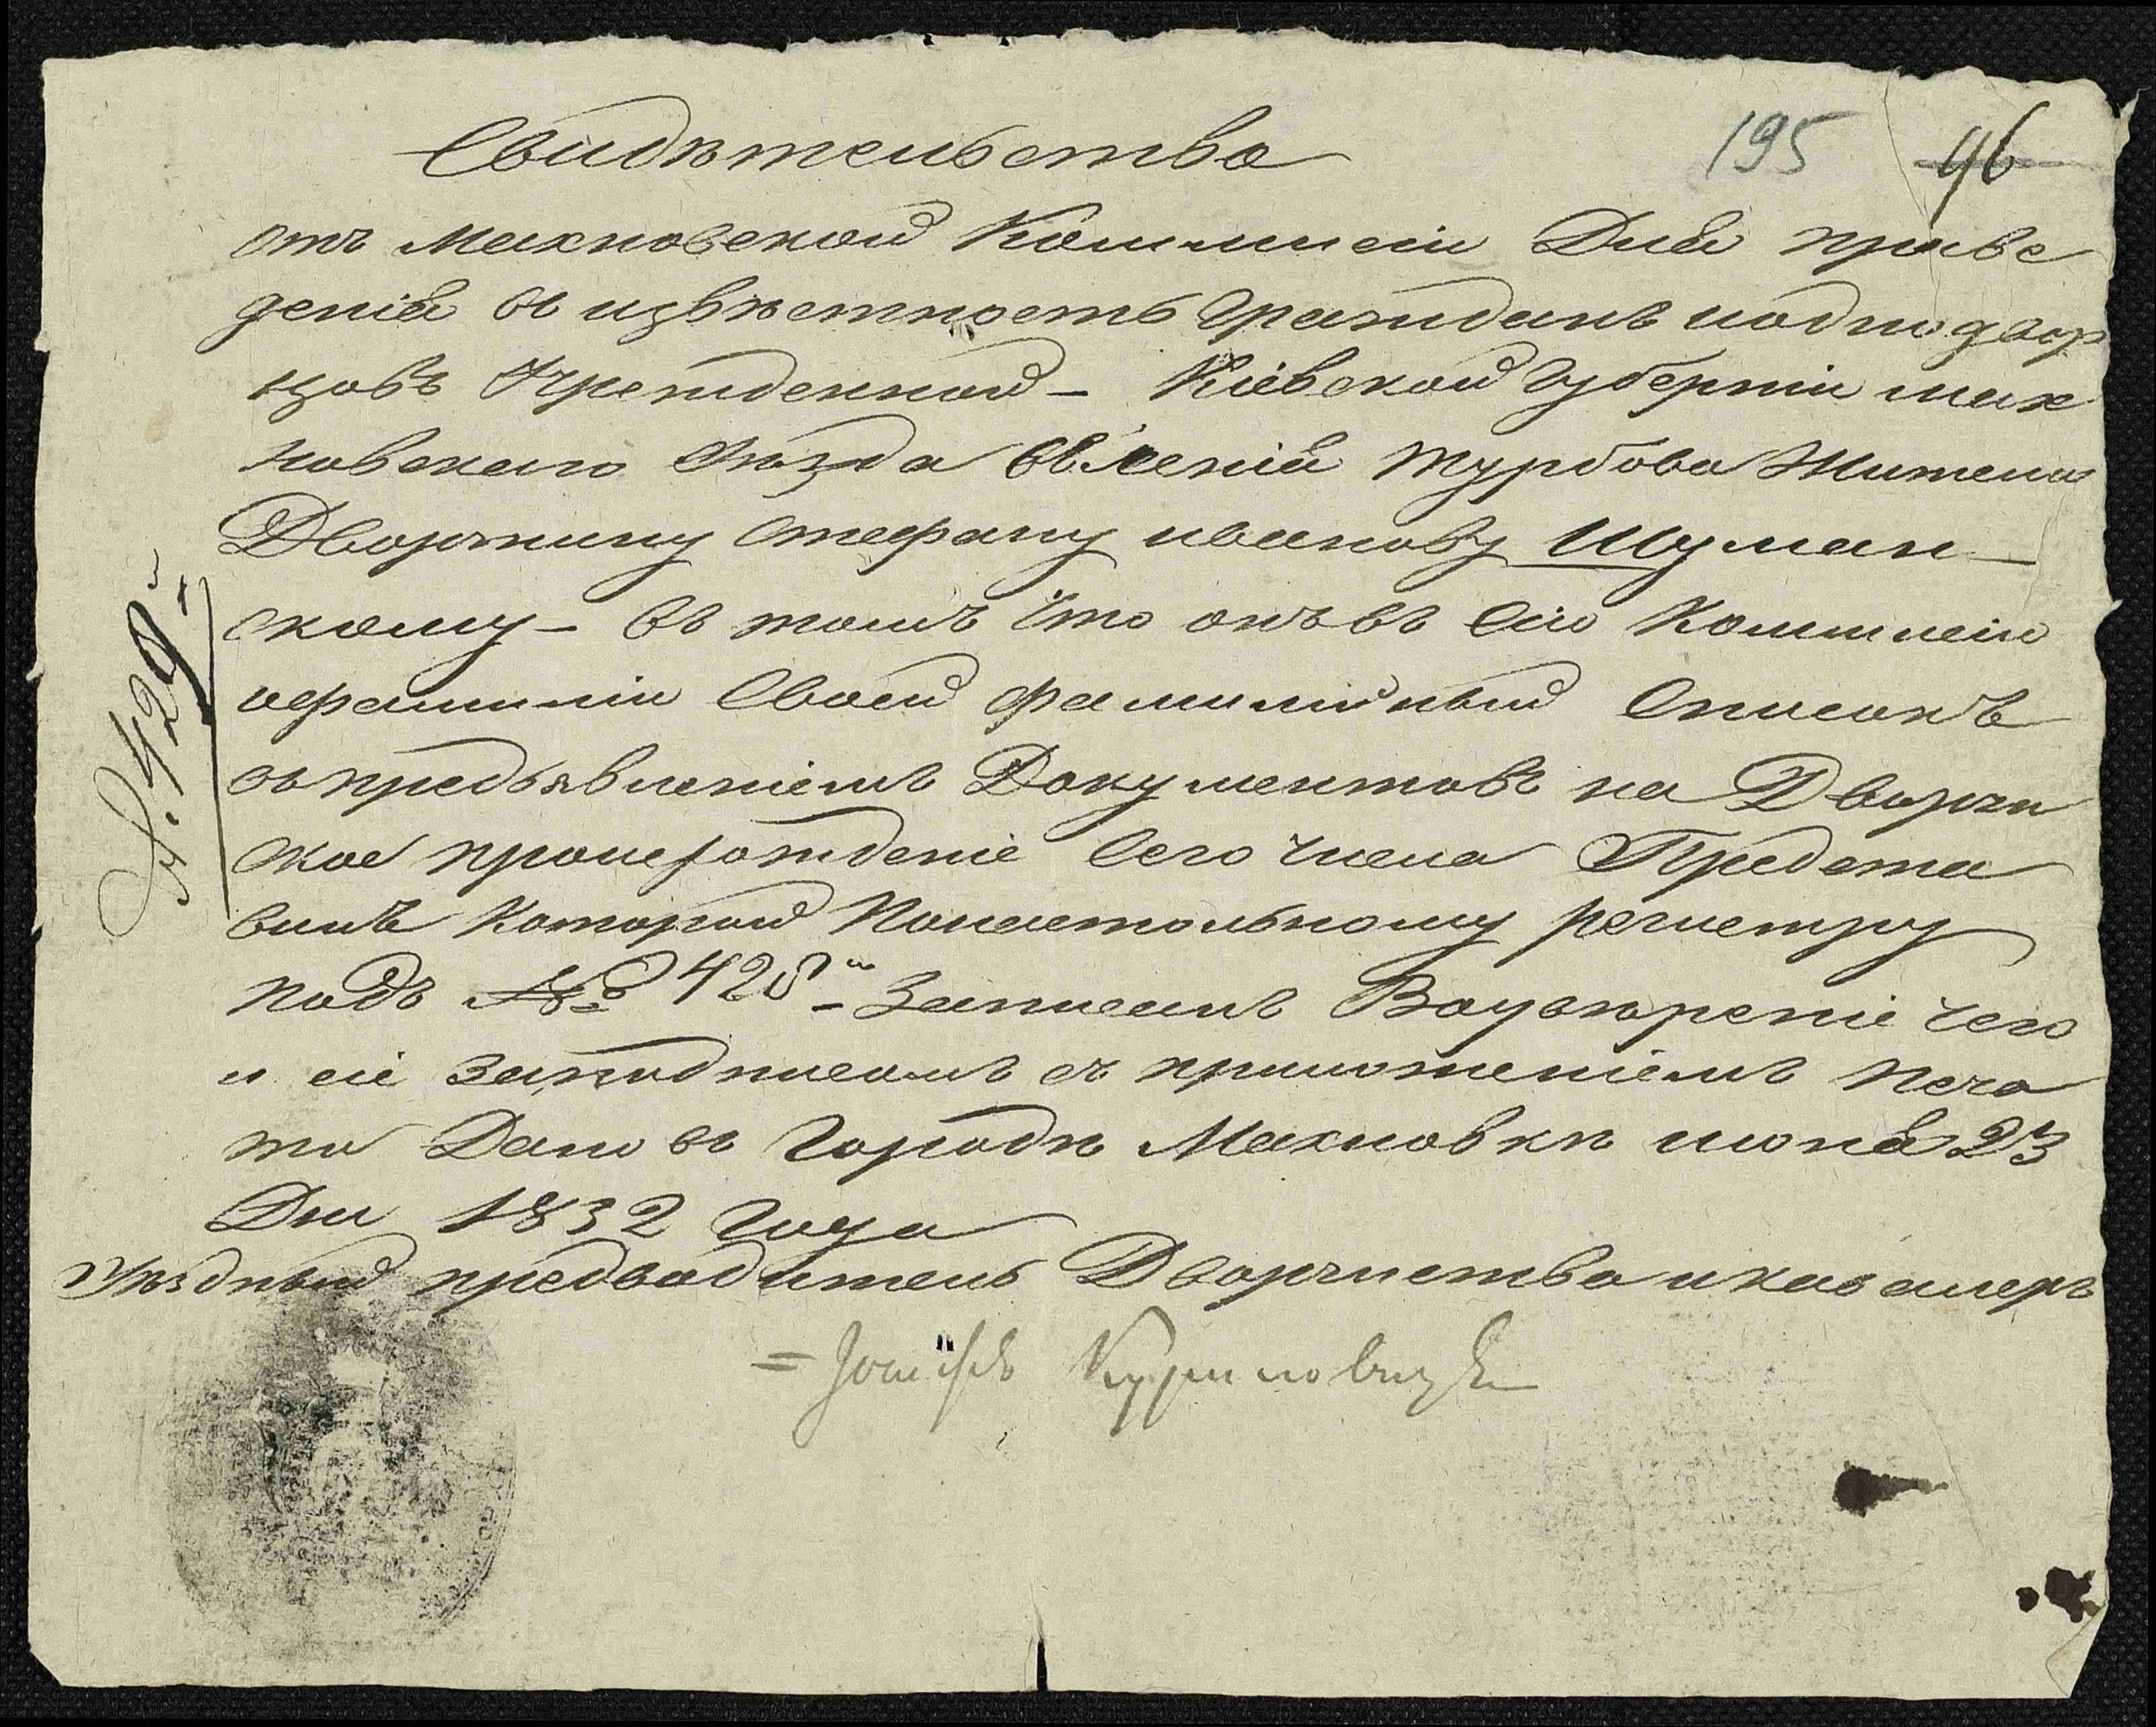 195 46
Свидѣтельство
отъ Махновской Коммисіи Для приве
денія въ извѣстность Гражданъ иодно двор
цовъ Учрежденной - Кіевской Губерніи мах
новскаго уѣзда Селенія Турбова Жителю
Дворянину Стефану иванову Шуман-
скому - въ томъ что онъ въ Сію Коммисію
офамиліи Своей Фамилийный Списокъ
съ предъявленіемъ Документовъ на Дворян
ское произхожденіе Сего числа Предста
вилъ Которой Понастольному регистру
подъ № 428 Записанъ Воувѣреніе чего
и сіе Заподписомъ съ приложеніемъ Печа
ти Дано въ Городѣ Махновкѣ июня 23
Дня 1832 Года
Уѣздный предводитель Дворянства и кавалеръ
№. 429